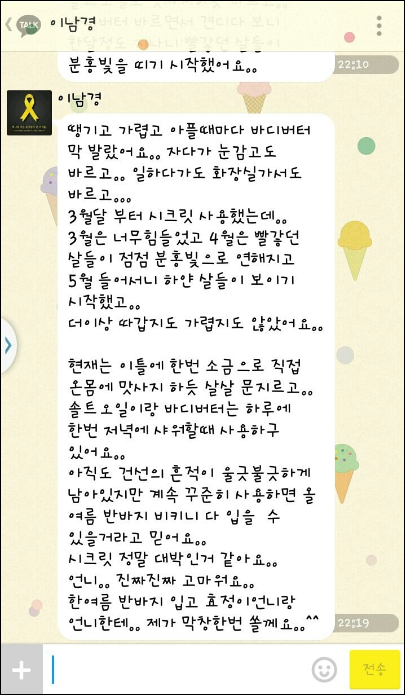 TALK
이남경
분홍빛을 띠기 시작했어요..
22:10
이남경
땡기고 가렵고 아플때마다 바디버터
막 발랐어요.. 자다가 눈감고도
바르고.. 일하다가도 화장실가서도
바르고...
3월달 부터 시크릿 사용했는데..
3월은 너무힘들었고 4월은 빨갛던
살들이 점점 분홍빛으로 연해지고
5월 들어서니 하얀 살들이 보이기
시작했고..
더이상 따갑지도 가렵지도 않았어요..
현재는 이틀에 한번 소금으로 직접
온몸에 맛사지 하듯 살살 문지르고..
솔트 오일이랑 바디버터는 하루에
한번 저녁에 샤워할때 사용하구
있어요..
아직도 건선의 흔적이 울긋불긋하게
남아있지만 계속 꾸준히 사용하면 올
여름 반바지 비키니 다 입을 수
있을거라고 믿어요..
시크릿 정말 대박인거 같아요..
언니.. 진짜진짜 고마워요..
한여름 반바지 입고 효정이언니랑
언니한테.. 제가 막창한번 쏠께요..^^
22:19
전송